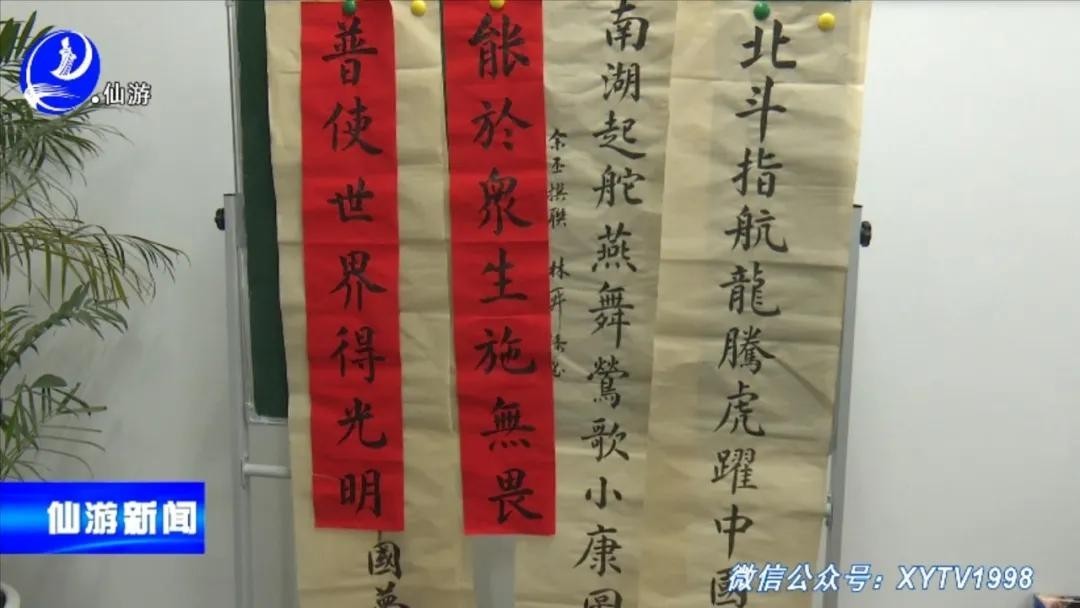 .仙游
北斗指航龍騰虎躍中國
南湖起舵燕舞鶯歌小康圖
余丕撰聯 林
能於眾生施無畏
普使世界得光明
國夢
仙游新闻
微信公众号：XYTV1998